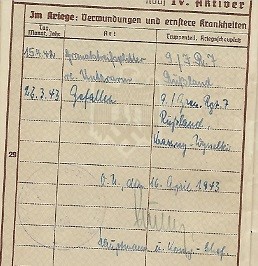 IV. Aktiver
Im Kriege: Verwundungen und ernstere Krankheiten
Tag, Monat, Jahr Art Truppenteil, Kriegsschauplatz
15.4.42 Granatsplitter 9./J.R.7
re. Unterarm Rußland
22.3.43 Gefallen 9./Gren.Rgt.7
Rußland,
29
O.U., den 16. April 1943
Hauptmann u. Komp.-Chef